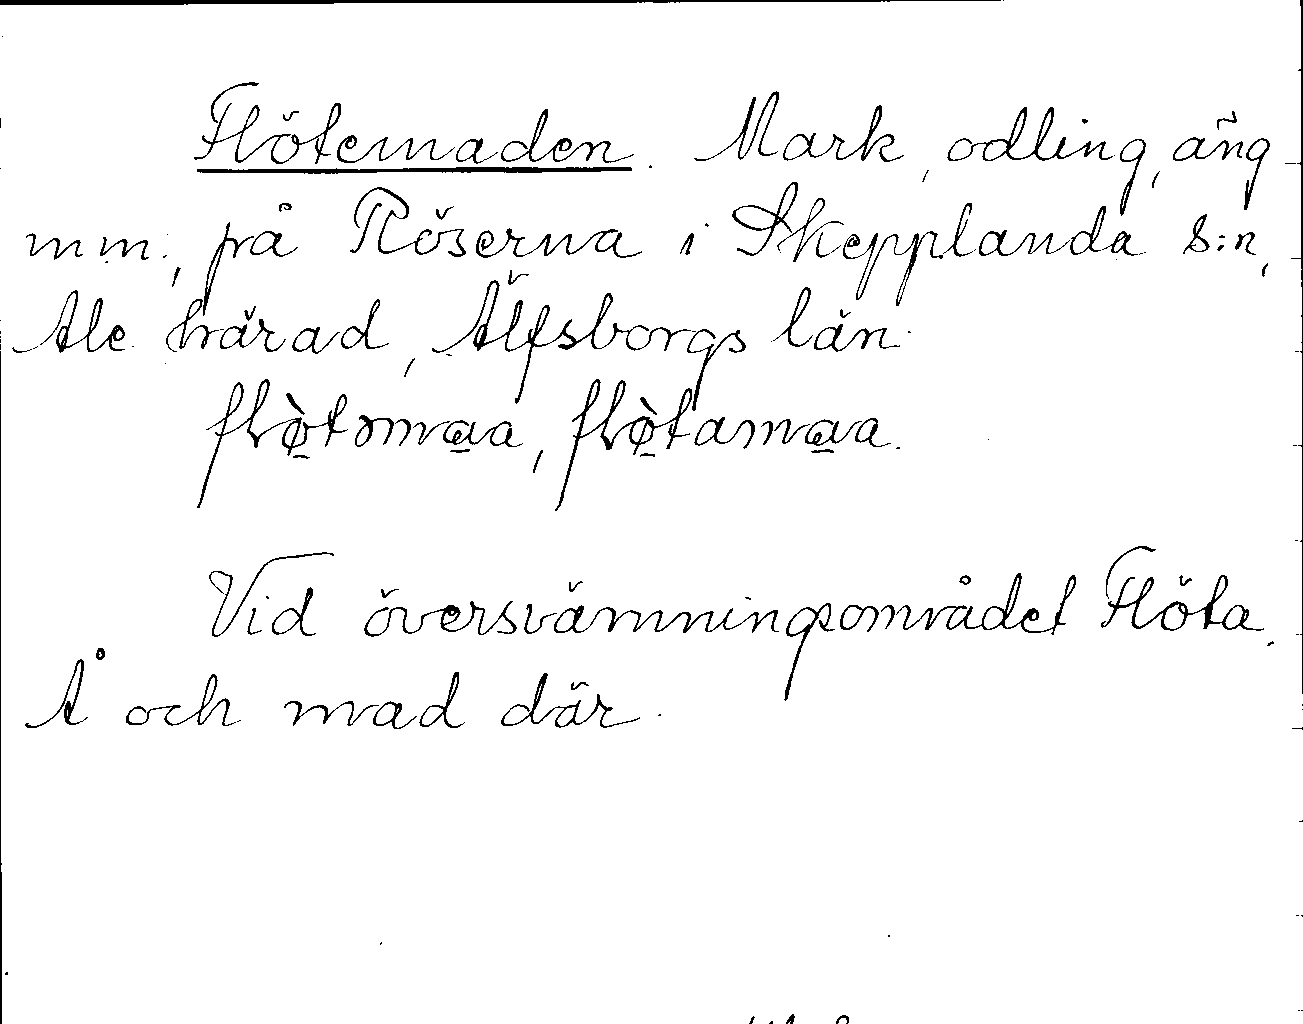 Flötemaden. Mark, odling, äng
m.m., på Röserna i Skepplanda s:n,
Ale härad, Älfsborgs län.
flø̀təmaa, flø̀tamaa.
Vid översvämningsområdet Flöta.
Å och mad där.